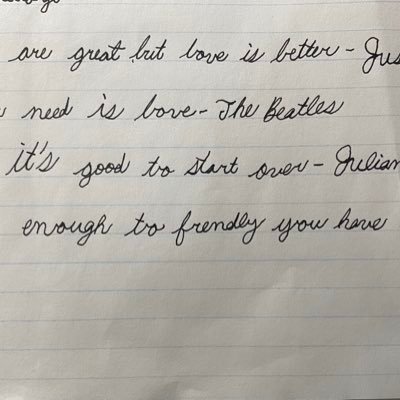 are great but love is better - Jus
need is love - The Beatles
it's good to start over - Julian
enough to frendly you have